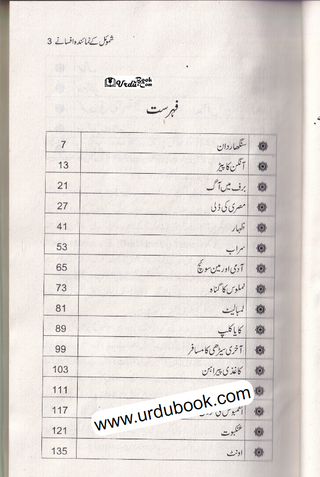 شموئل کے نمائندہ افسانے 3
Urdu Book .Com
فہرست
سنگھاردان 7
آنگن کا پیڑ 13
برف میں آگ 21
مصری کی ڈلی 27
ظہار 41
سراب 53
آدمی اور مین سوئچ 65
نملوس کا گناہ 73
ٹمپالیٹ 81
کایا کلپ 89
آخری سیڑھی کا مسافر 99
کاغذی پیراہن 103
111
117
عنکبوت 121
اونٹ 135
www.urdubook.com